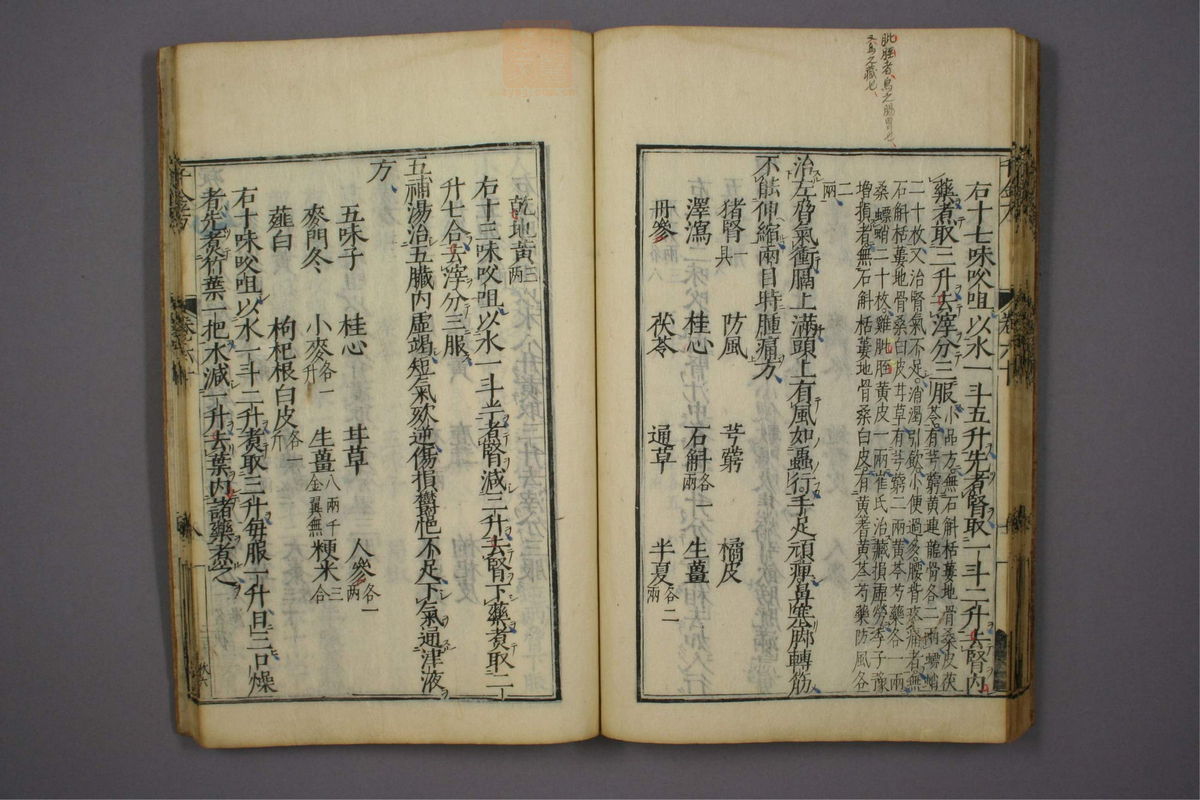 胣胵者、鳥之腸胃也、
又鳥之藏也、
右十七味㕮咀以水一斗五升先煮腎取一斗二升去腎内
藥煮取三升去滓分三服小品方無石斛栝蔞地骨桑皮茯
苓有芎藭黄連龍骨各二兩螵蛸
二十枚又治腎氣不足消渴引飲小便過多腰背疼痛者無
石斛栝蔞地骨桑白皮甘草有芎藭二兩黄芩芍藥各一兩
桑螵蛸二十枚雞胣胵黄皮一兩崔氏治藏損虛勞季子豫
增損者無石斛栝蔞地骨桑白皮有黄耆黄芩芍藥防風各
二
兩
治左脅氣衝膈上滿頭上有風如蟲行手足頑痹鼻塞脚轉筋
不能伸縮兩目時腫痛方
猪腎一具 防風 芎藭 橘皮
澤瀉 桂心 石斛各一兩 生薑
丹參 茯苓 通草 半夏各二兩
乾地黄三兩
右十三味㕮咀以水一斗半煮腎減三升去腎下藥煮取二
升七合去滓分三服
五補湯治五臟内虛竭短氣欬逆傷損欝悒不足下氣通津液
方
五味子 桂心 甘草 人參各一兩
麥門冬 小麥各一升 生薑八兩千金翼無 粳米三合
薤白 枸杞根白皮各一斤
右十味㕮咀以水一斗二升煮取三升每服一升日三口燥
者先煮竹葉一把水減一升去葉内諸藥煮之
千金方
卷六十